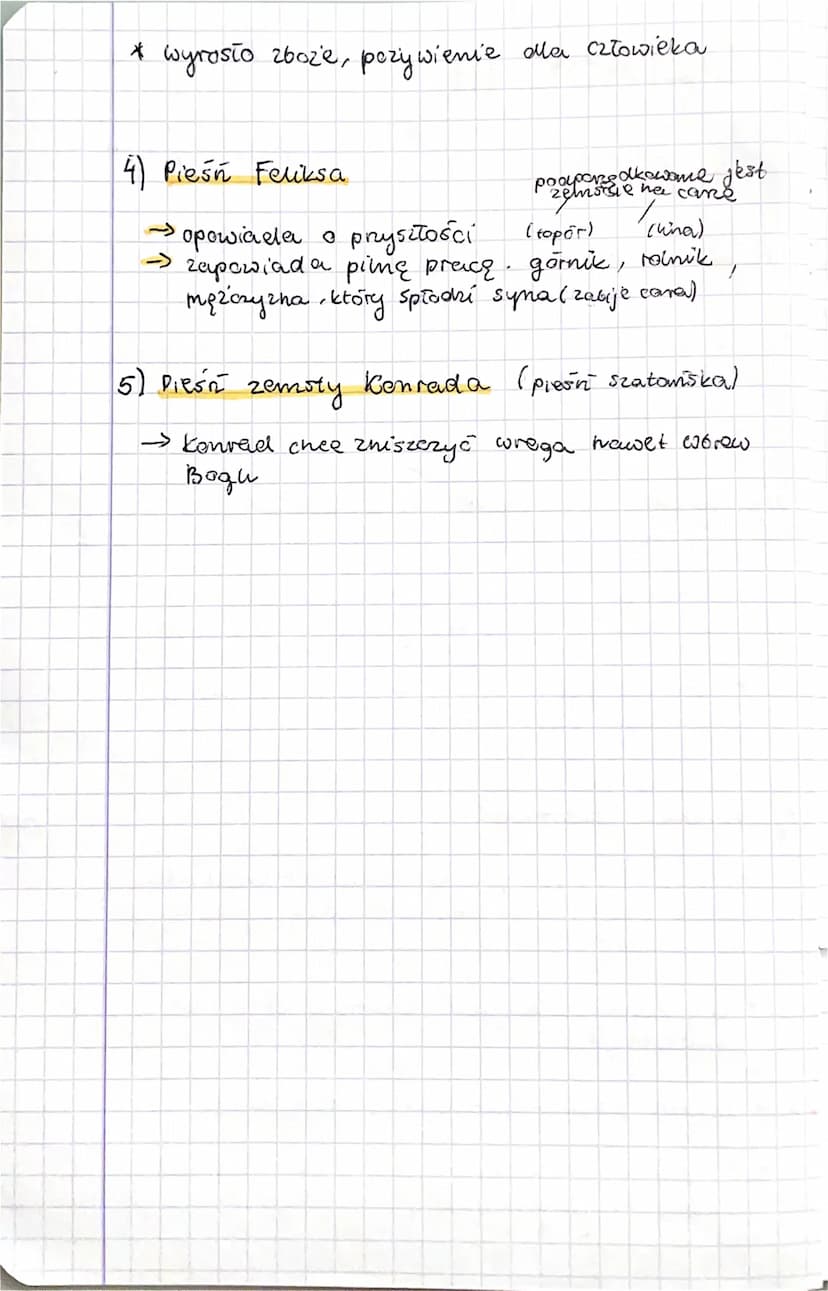 * wyrosło zboże, pożywienie dla człowieka
4) Pieśń Feliksa
podporządkowane jest
zemście na carze
→ opowiada o przyszłości (topór) (lina)
→ zapowiada pilną pracę. górnik, rolnik,
mężczyzna, który spłodzi syna (zabije cara)
5) Pieśń zemsty Konrada (pieśń szatańska)
→ Konrad chce zniszczyć wroga nawet wbrew
Bogu